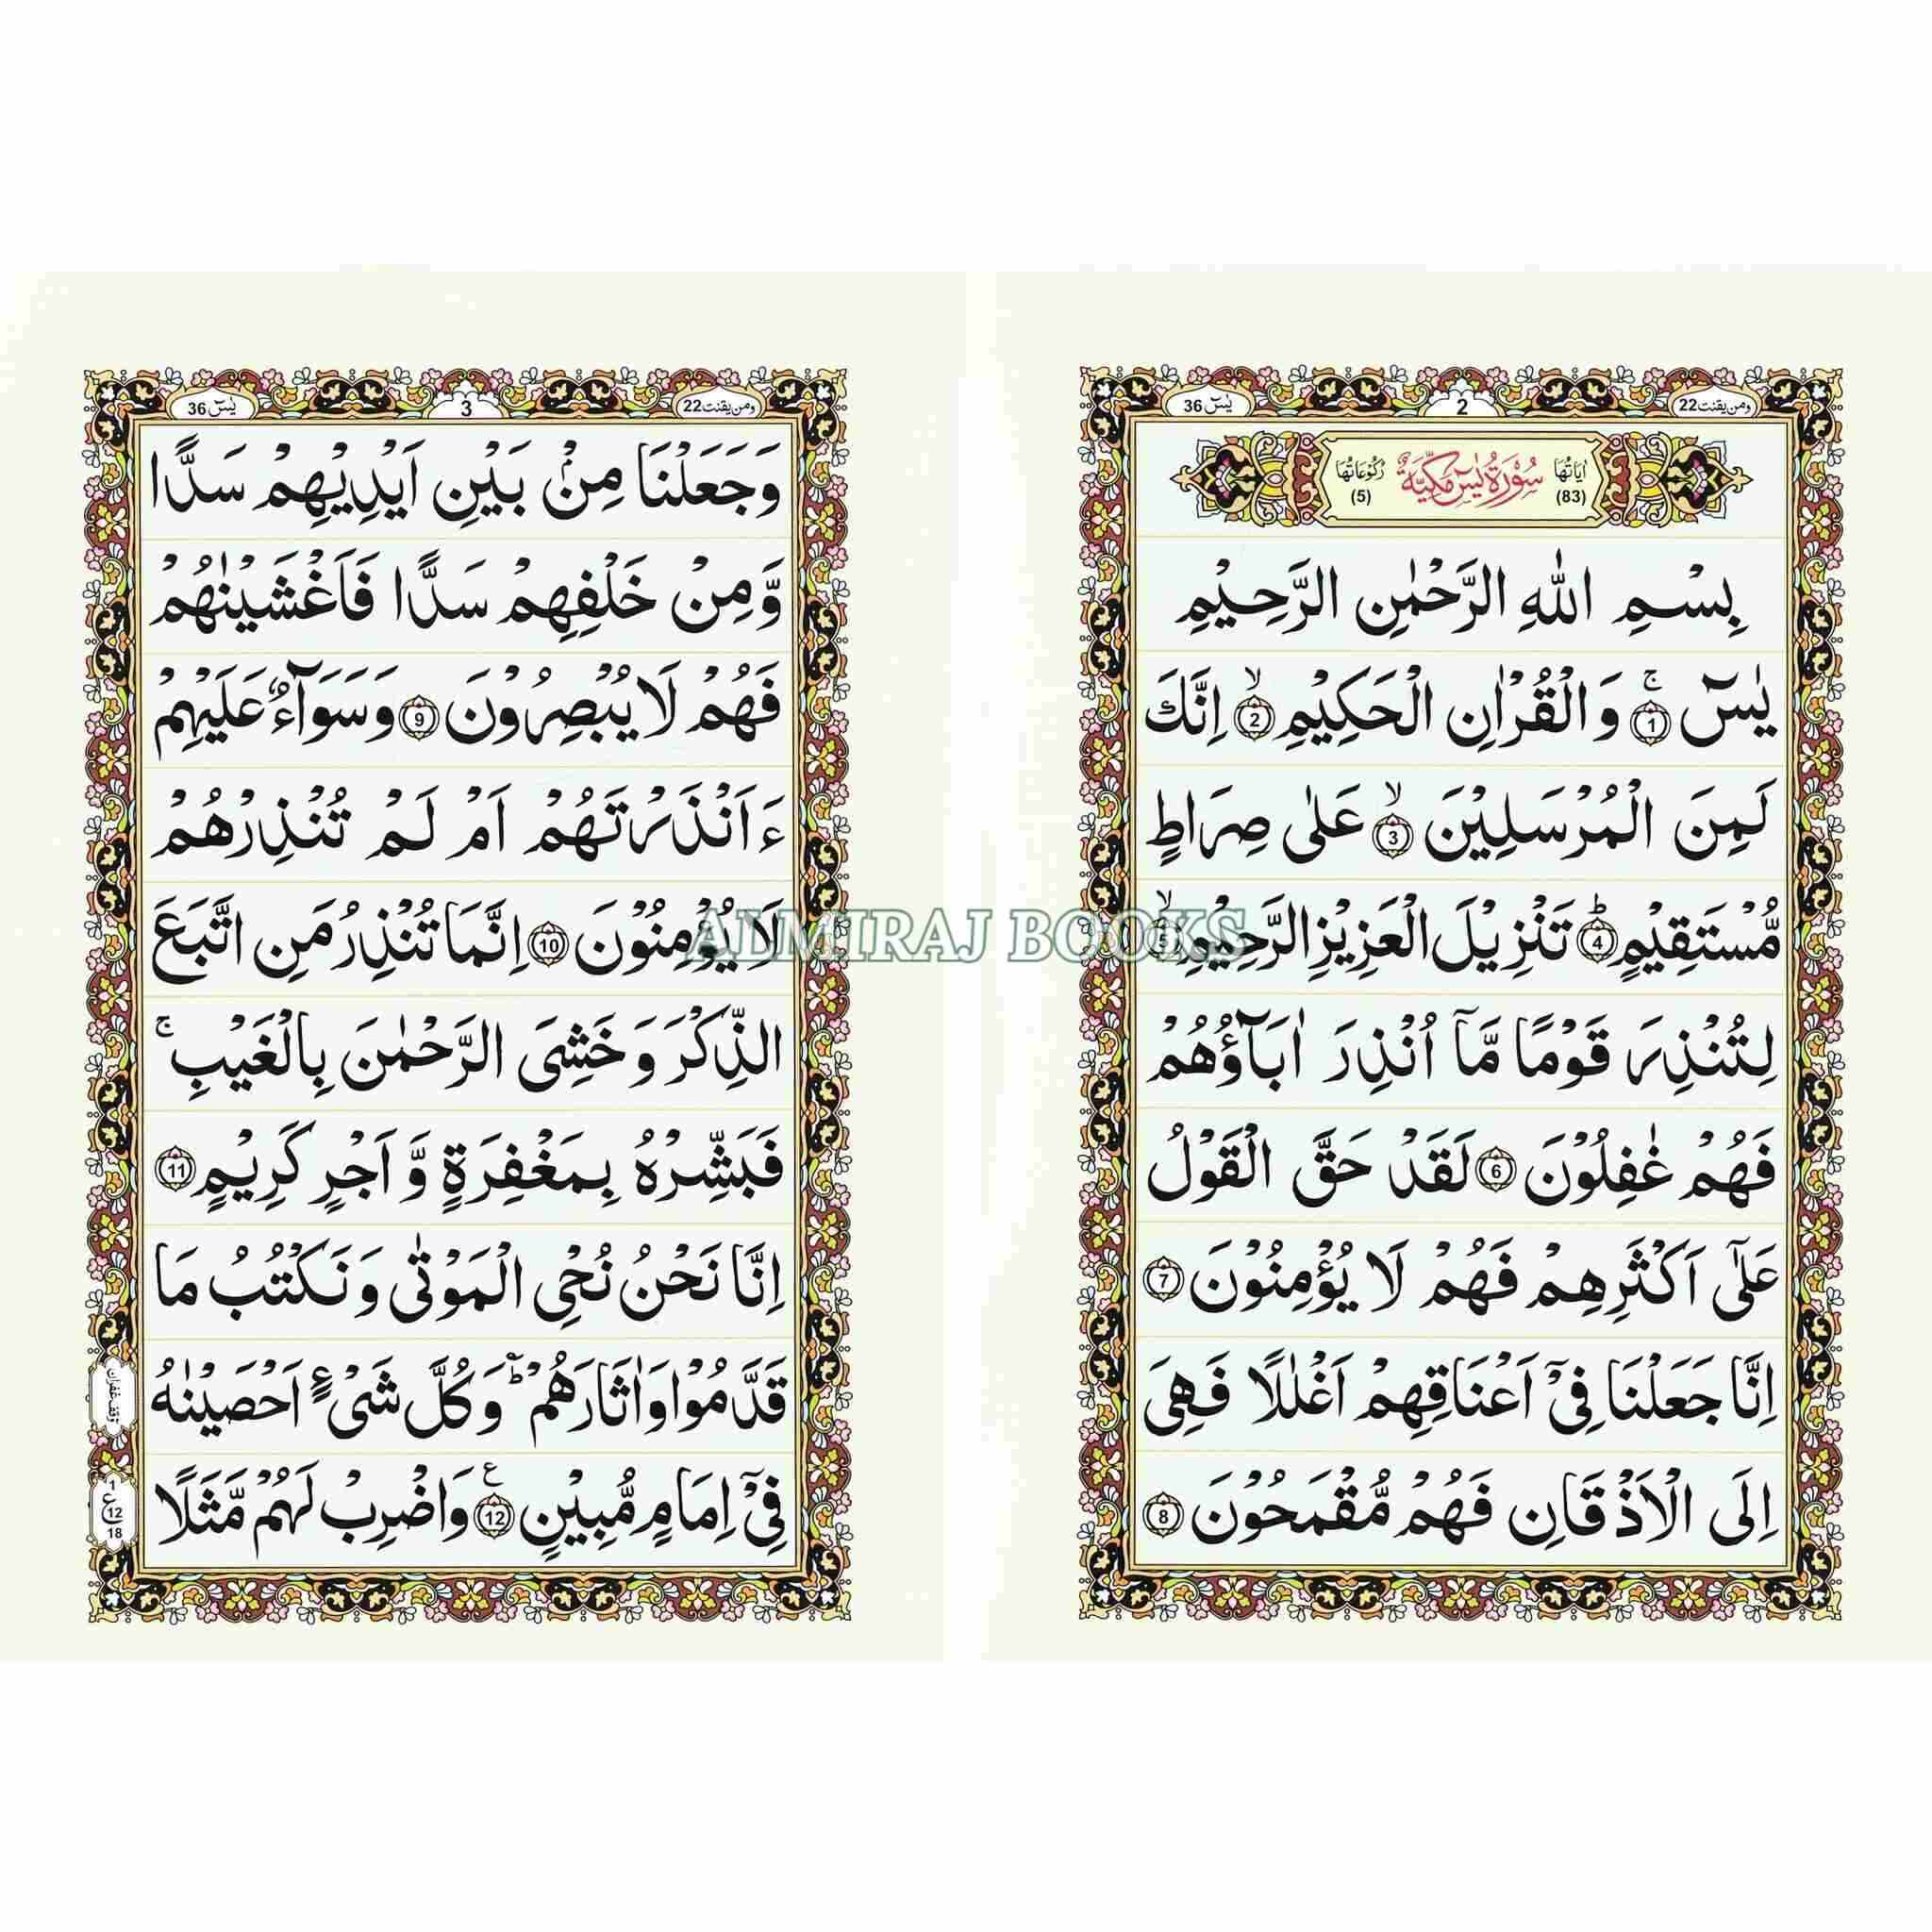 ومن يقنت 22
2
يٰسٓ 36
اٰيَاتُهَا (83)
سُوْرَةُ يٰسٓ مَكِّيَّةٌ
رُكُوْعَاتُهَا (5)
بِسْمِ اللّٰهِ الرَّحْمٰنِ الرَّحِيْمِ
يٰسٓ ۚ 1 وَالْقُرْاٰنِ الْحَكِيْمِ ۙ 2 اِنَّكَ
لَمِنَ الْمُرْسَلِيْنَ ۙ 3 عَلٰى صِرَاطٍ
مُّسْتَقِيْمٍ ؕ 4 تَنْزِيْلَ الْعَزِيْزِ الرَّحِيْمِ ۙ 5
لِتُنْذِرَ قَوْمًا مَّاۤ اُنْذِرَ اٰبَآؤُهُمْ
فَهُمْ غٰفِلُوْنَ 6 لَقَدْ حَقَّ الْقَوْلُ
عَلٰۤى اَكْثَرِهِمْ فَهُمْ لَا يُؤْمِنُوْنَ 7
اِنَّا جَعَلْنَا فِىْۤ اَعْنَاقِهِمْ اَغْلٰلًا فَهِىَ
اِلَى الْاَذْقَانِ فَهُمْ مُّقْمَحُوْنَ 8
ومن يقنت 22
3
يٰسٓ 36
وَجَعَلْنَا مِنْۢ بَيْنِ اَيْدِيْهِمْ سَدًّا
وَّمِنْ خَلْفِهِمْ سَدًّا فَاَغْشَيْنٰهُمْ
فَهُمْ لَا يُبْصِرُوْنَ 9 وَسَوَآءٌ عَلَيْهِمْ
ءَاَنْذَرْتَهُمْ اَمْ لَمْ تُنْذِرْهُمْ
لَا يُؤْمِنُوْنَ 10 اِنَّمَا تُنْذِرُ مَنِ اتَّبَعَ
الذِّكْرَ وَخَشِىَ الرَّحْمٰنَ بِالْغَيْبِ ۚ
فَبَشِّرْهُ بِمَغْفِرَةٍ وَّاَجْرٍ كَرِيْمٍ 11
اِنَّا نَحْنُ نُحْىِ الْمَوْتٰى وَنَكْتُبُ مَا
قَدَّمُوْا وَاٰثَارَهُمْ ؕ وَكُلَّ شَىْءٍ اَحْصَيْنٰهُ
فِىْۤ اِمَامٍ مُّبِيْنٍ ع 12 وَاضْرِبْ لَهُمْ مَّثَلًا
وقف غفران
1
12
18
ALMIRAJ BOOKS